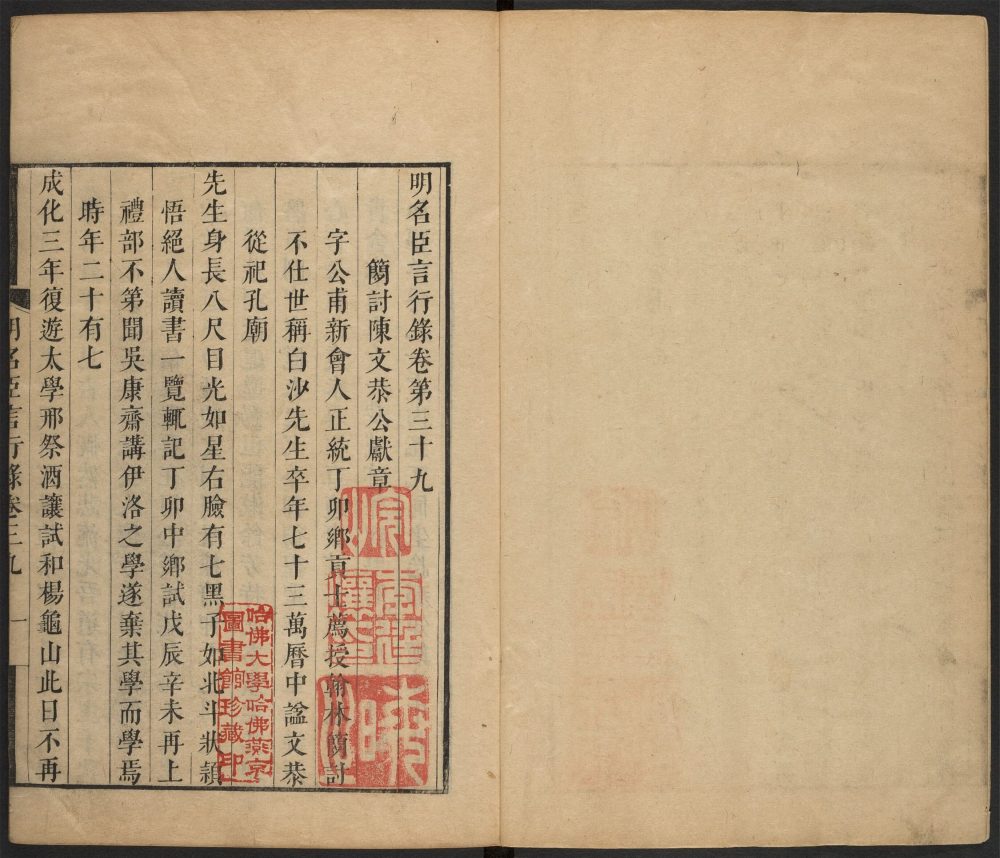 明名臣言行錄卷第三十九
簡討陳文恭公獻章
字公甫新會人正統丁卯鄉貢士薦授翰林簡討
不仕世稱白沙先生卒年七十三萬曆中諡文恭
從祀孔廟
先生身長八尺目光如星右臉有七黑子如北斗狀穎
悟絕人讀書一覽輒記丁卯中鄉試戊辰辛未再上
禮部不第聞吳康齋講伊洛之學遂棄其學而學焉
時年二十有七
成化三年復遊太學邢祭酒讓試和楊龜山此日不再
明名臣言行錄卷三九 一
哈佛大學哈佛燕京
圖書館珍藏印